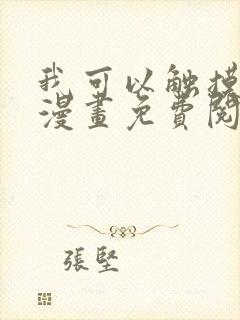 我可以触摸
漫畫免費閱
張堅